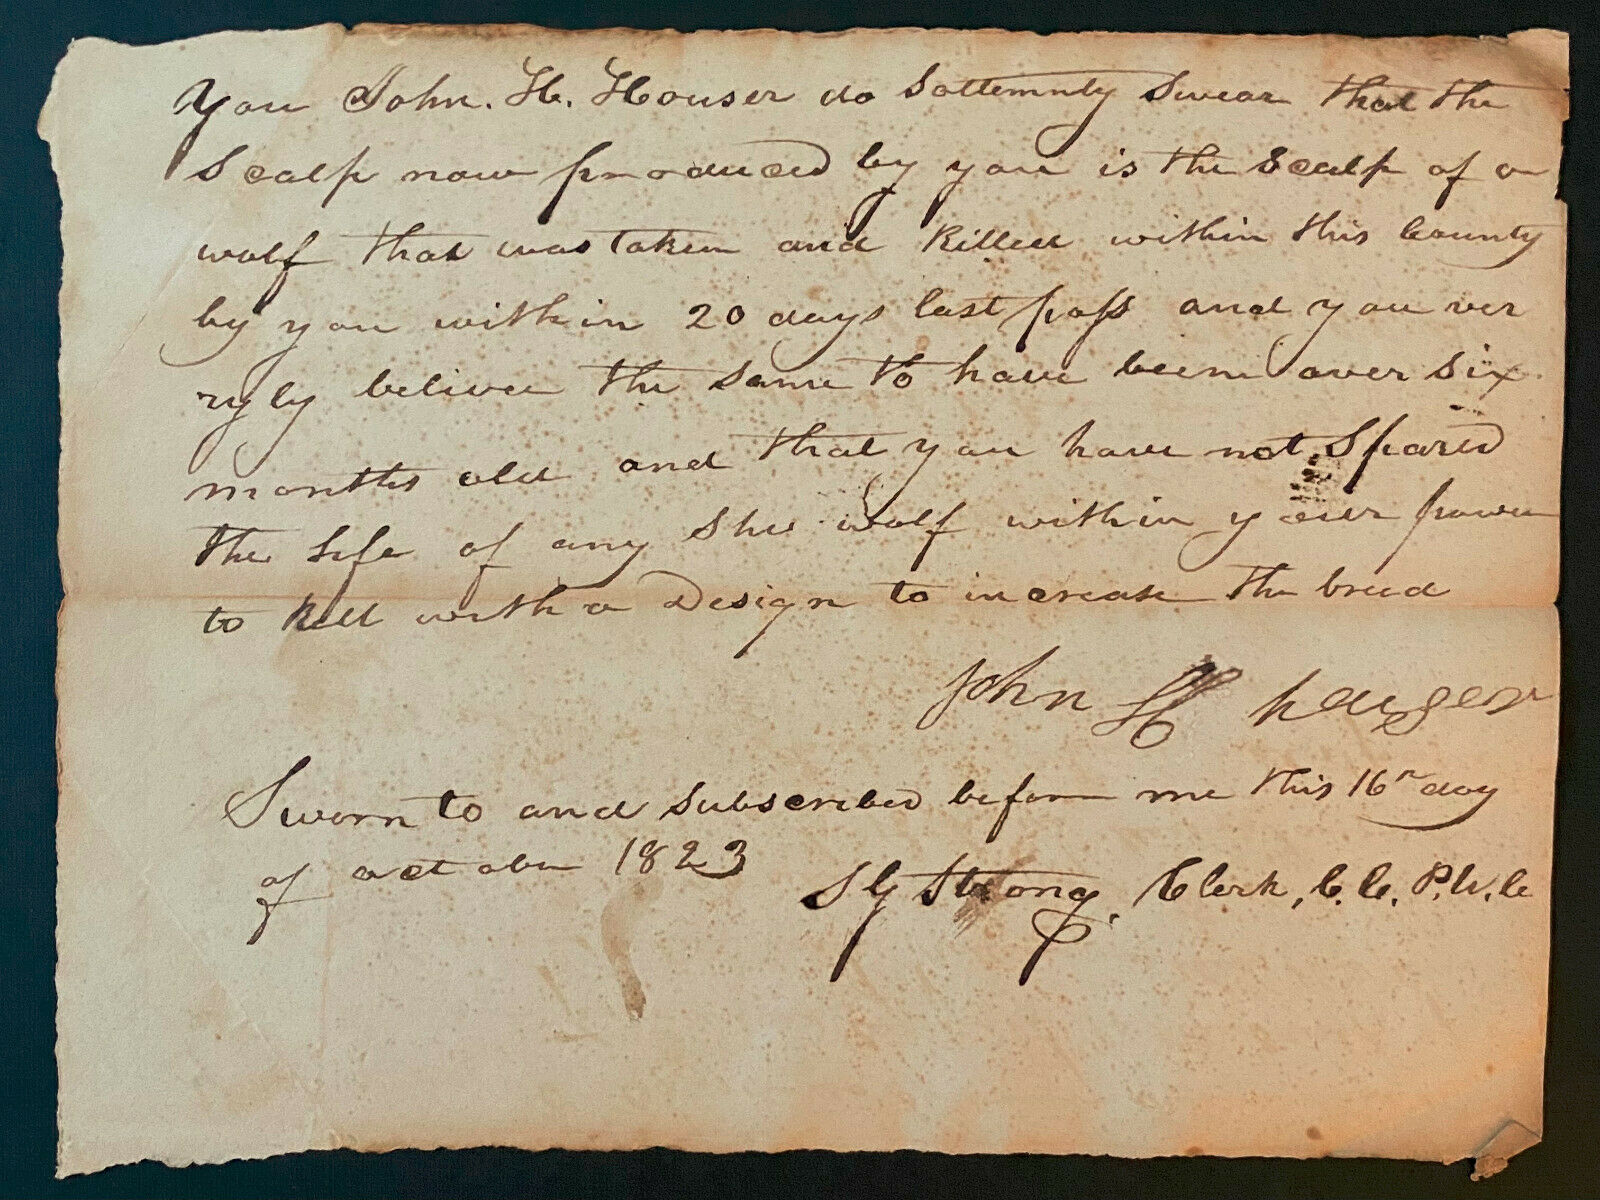 You John. H. Houser do Sollemnly Swear that the
Scalp now produced by you is the Scalp of a
wolf that was taken and Killed within this County
by you within 20 days last past and you ver
ryly belivee the same to have been over six
months old and that you have not Spared
the life of any She wolf within your power
to Kill with a Design to increase the breed
John H hauser
Sworn to and subscribed before me this 16th day
of october 1823
Strong, Clerk, C. C. P. W. C